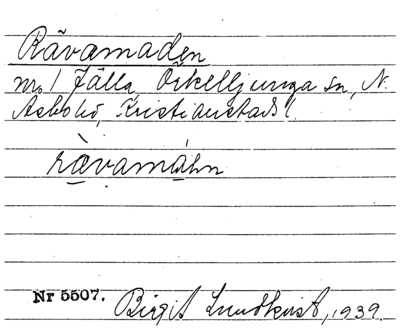 Rävamaden
nr. 1 Fälla, Örkelljunga sn, N.
Åsbo hd, Kristianstads l.
rävamáhn
Nr 5507. Birgit Lundkvist, 1939.